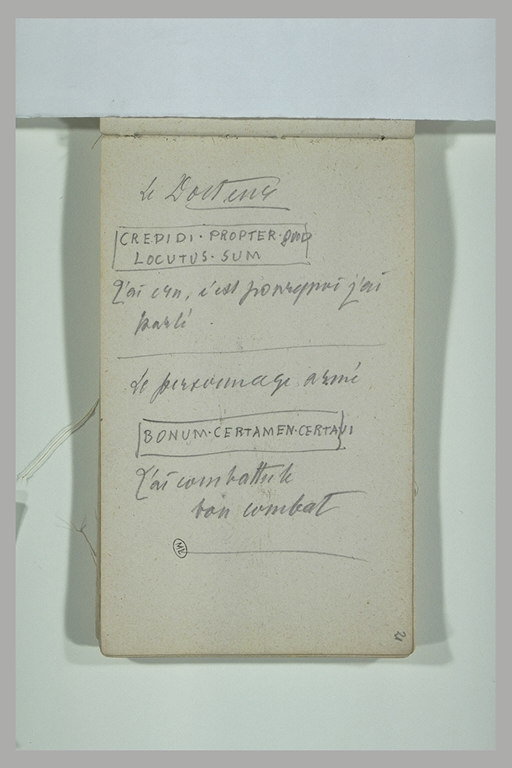 Le Docteur
CREDIDI · PROPTER · QUOD
LOCUTUS · SUM
J'ai cru, c'est pourquoi j'ai
parlé
Le personnage armé
BONUM · CERTAMEN · CERTAVI
J'ai combattu le
bon combat
ML
21